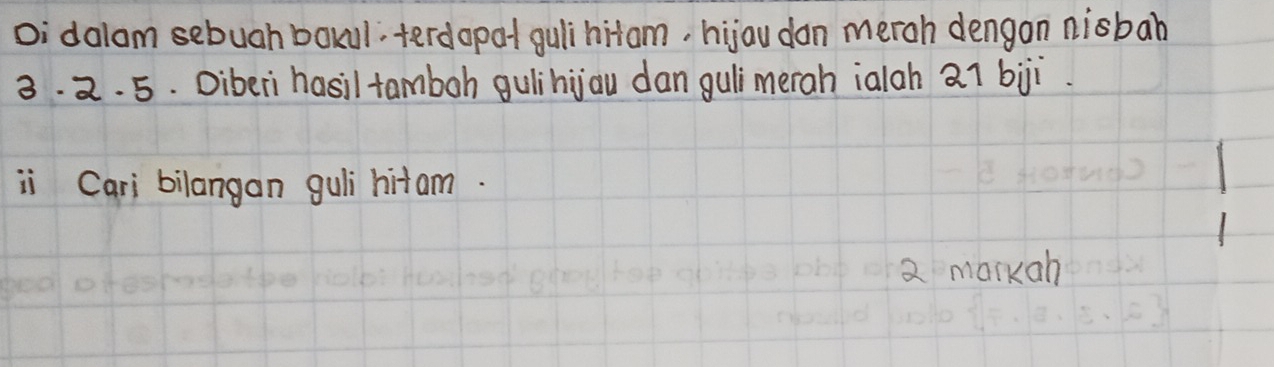 Di dalam sebuah bakul. terdapat guli hitam, hijau dan merah dengan nisbah
3.2.5. Diberi hasil tambah guli hijau dan guli merah ialah 21 biji.
ii Cari bilangan guli hitam.
2 markah